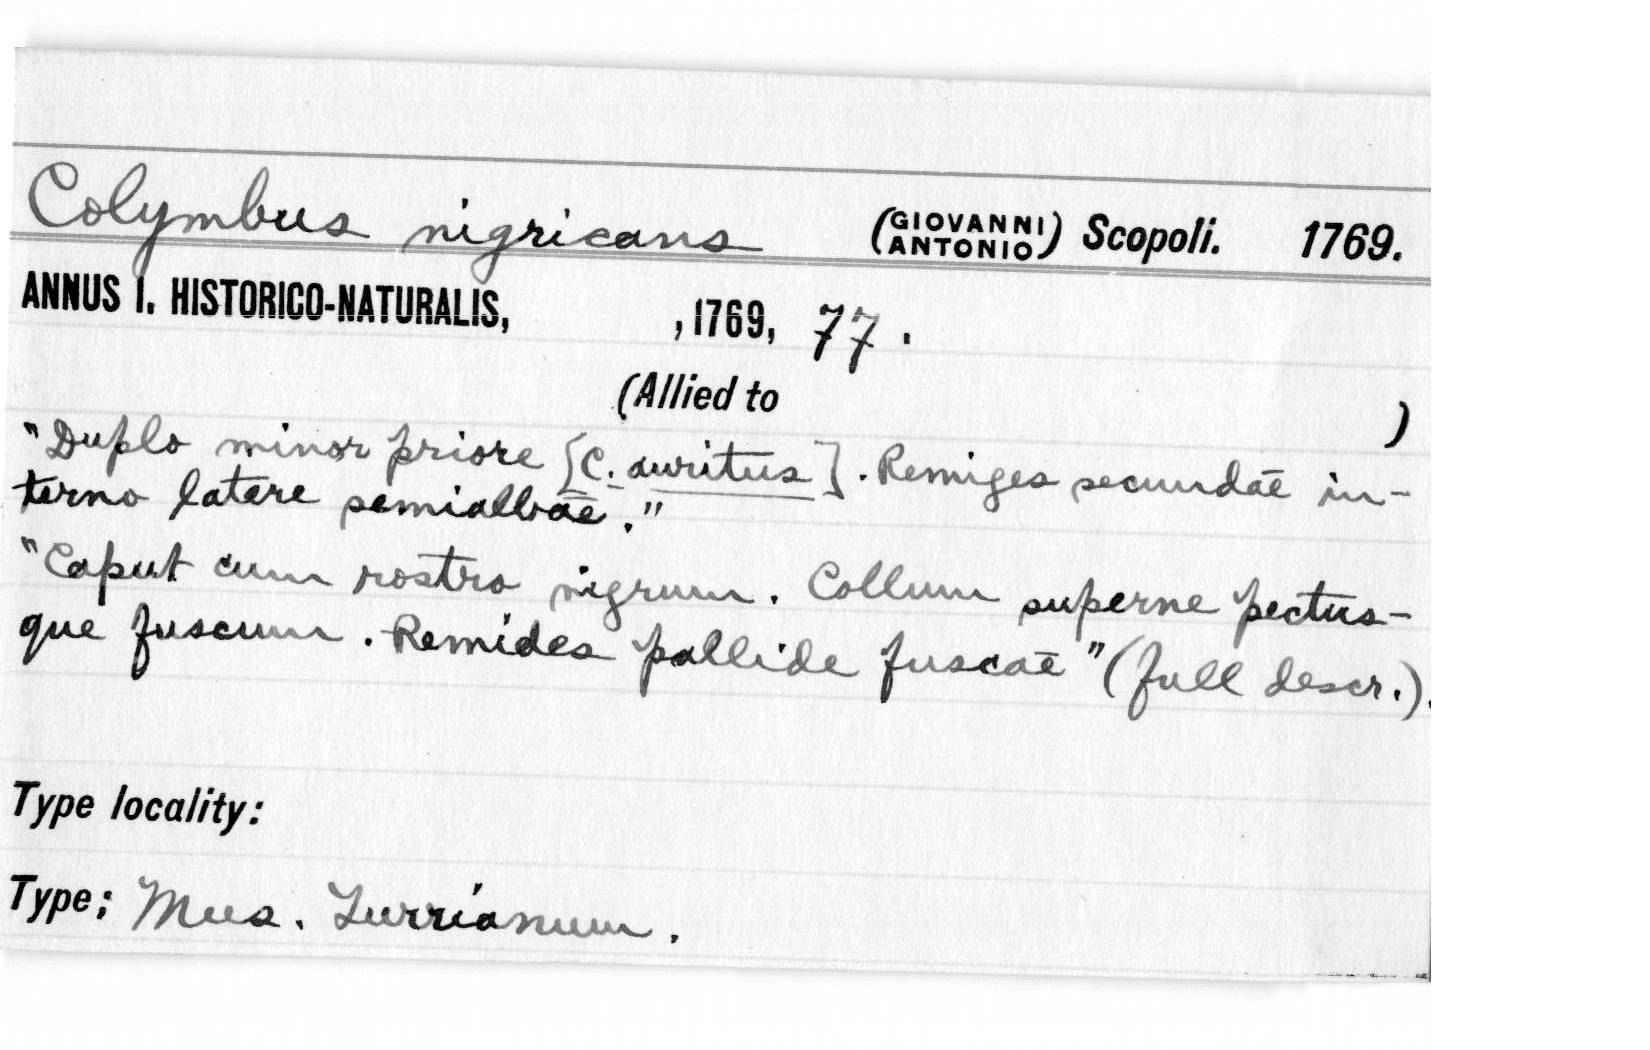 Colymbus nigricans (GIOVANNI ANTONIO) Scopoli. 1769.
ANNUS I. HISTORICO-NATURALIS, , 1769, 77.
(Allied to )
"Duplo minor priore [C. auritus]. Remiges secundae in-
terno latere semialbae."
"Caput cum rostro nigrum. Collum superne pectus-
que fuscum. Remides pallide fuscae" (full descr.).
Type locality:
Type; Mus. Turrianum.